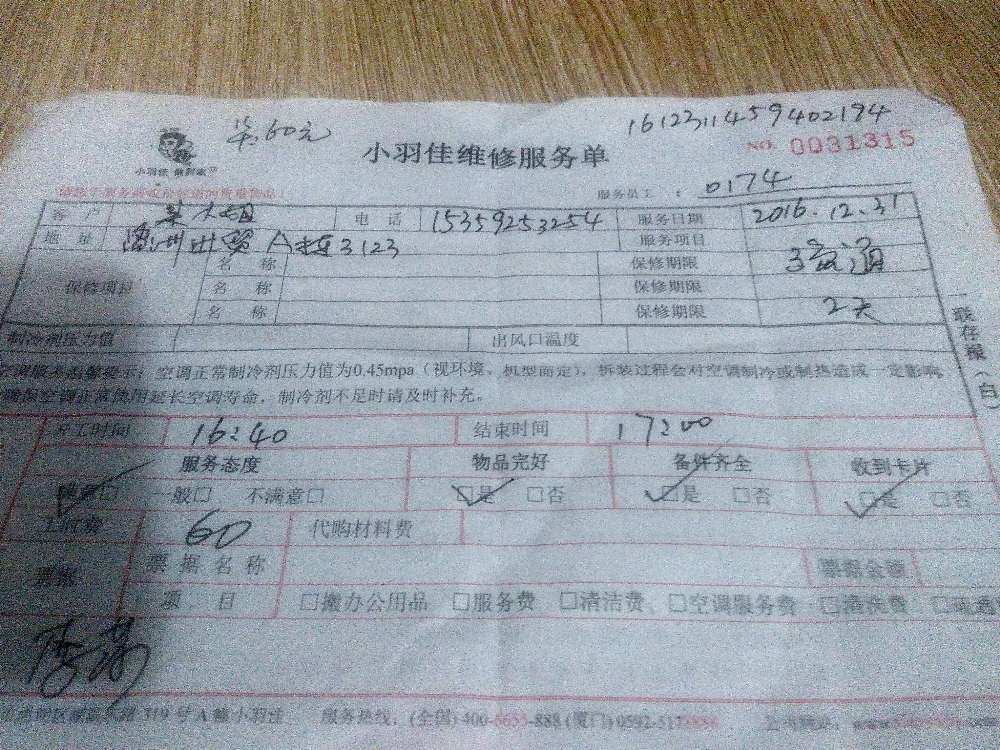 60元
16122311459402194
小羽佳维修服务单
NO. 0031315
小羽佳
服务员工 : 0174
客 户 小姐 电 话 15359253254 服务日期 2016.12.31
地 址 A栋3123 服务项目
名 称 保修期限
保修项目 名 称 保修期限
名 称 保修期限 2天
制冷剂压力值 出风口温度
空调正常制冷剂压力值为0.45mpa(视环境、机型而定),拆装过程会对空调制冷或制热造成一定影响,
确保空调正常使用延长空调寿命,制冷剂不足时请及时补充。
开工时间 16:40 结束时间 17:00
服务态度 物品完好 备件齐全 收到卡片
满意□ 一般□ 不满意□ □是 □否 □是 □否 □是 □否
工时费 60 代购材料费
票据 票据名称 票据金额
项 目 □撤办公用品 □服务费 □清洁费 □空调服务费 □清洗费
319号A幢小羽佳 服务热线:(全国)400-6655-888(厦门)0592-517
一联存根(白)